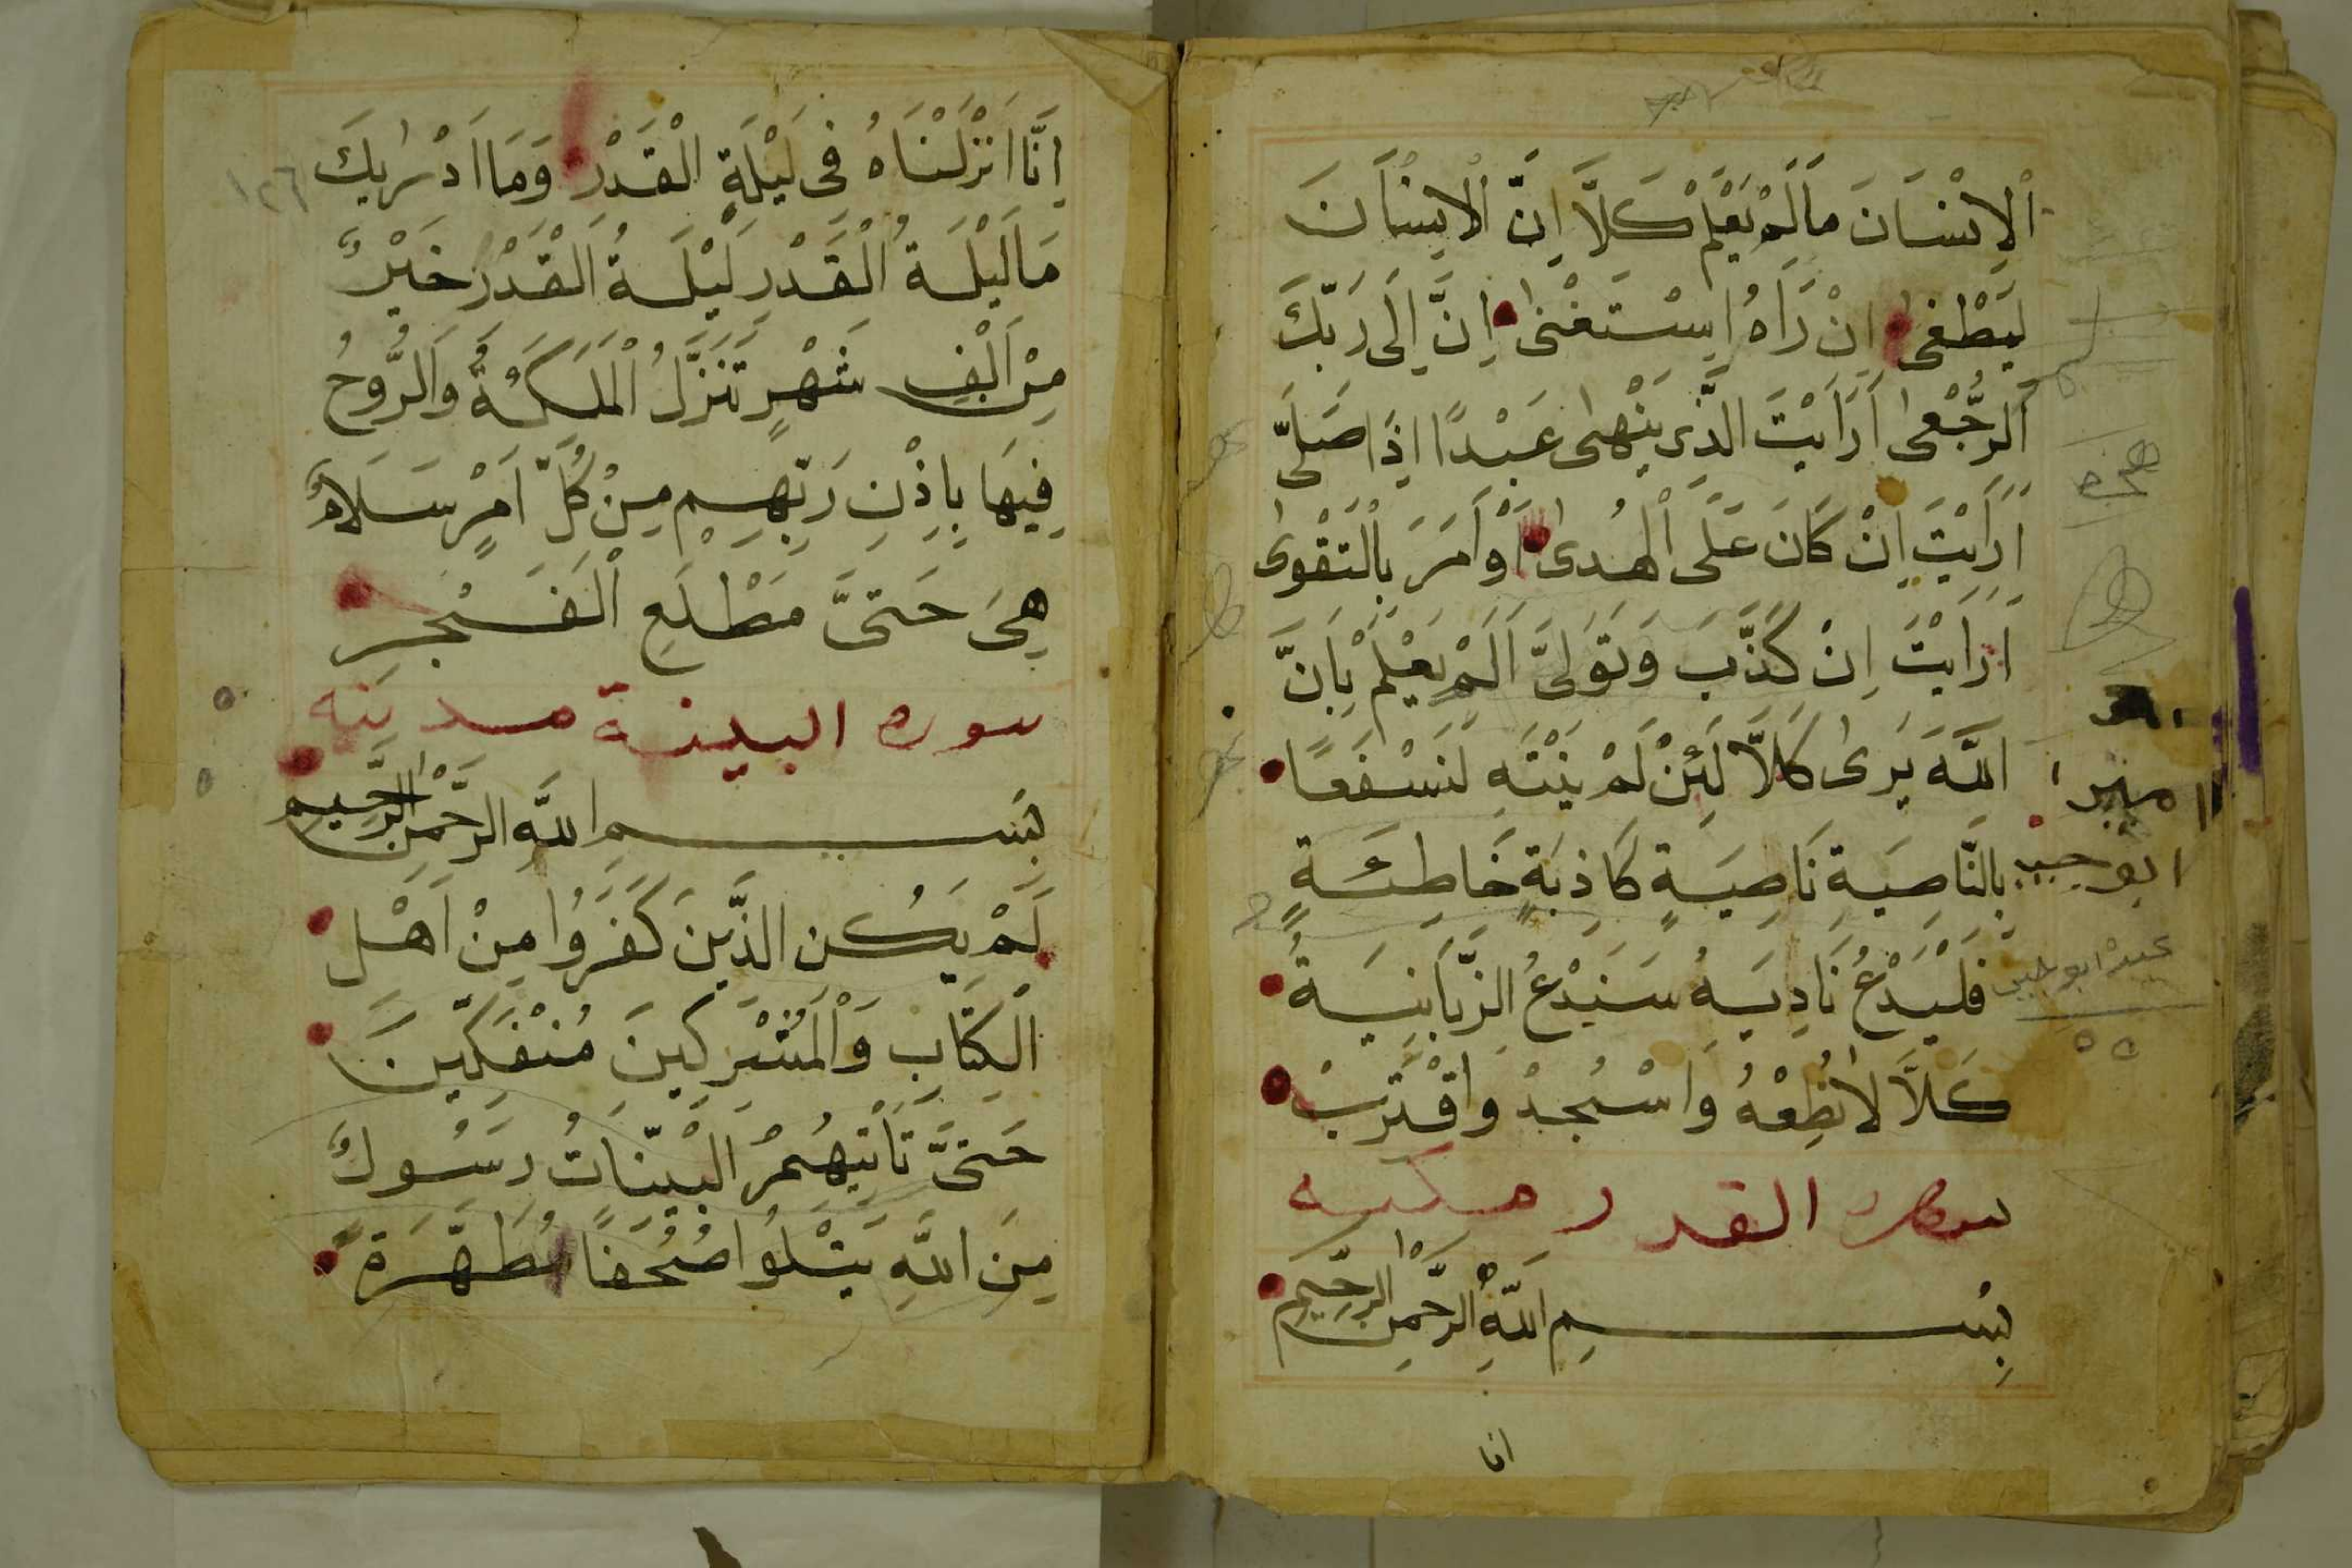 اَلْاِنْسَانَ مَالَمْ يَعْلَمْ كَلَّا اِنَّ الْاِنْسَانَ
لَيَطْغٰى اِنْ رَاهُ اسْتَغْنٰى اِنَّ اِلَى رَبِّكَ
اَلرُّجْعٰى اَرَاَيْتَ الَّذِى يَنْهٰى عَبْدًا اِذَا صَلَّى
اَرَاَيْتَ اِنْ كَانَ عَلَى الْهُدٰى اَوْ اَمَرَ بِالْتَقْوٰى
اَرَاَيْتَ اِنْ كَذَّبَ وَتَوَلىَّ اَلَمْ يَعْلَمْ بِاَنَّ
اللَّهَ يَرٰى كَلاَّ لَئِنْ لَمْ يَنْتَهِ لَنَسْفَعًا
بِالنَّاصِيَةِ نَاصِيَةٍ كَاذِبَةٍ خَاطِئَةٍ
فَلْيَدْعُ نَادِيَهُ سَنَدْعُ الزَّبَانِيَةُ
كَلاَّ لاَ تُطِعْهُ وَاسْجُدْ وَاقْتَرِبْ
سوره القدر مكيه
بِسْمِ اللَّهِ الرَّحْمنِ الرَّحِيمِ
انا
منير
ابو حبيب
١٢٦
اِنَّا اَنْزَلْنَاهُ فِى لَيْلَةِ الْقَدْرِ وَمَا اَدْرٰيكَ
مَا لَيْلَةُ الْقَدْرِ لَيْلَةُ الْقَدْرِ خَيْرٌ
مِنْ اَلْفِ شَهْرٍ تَنَزَّلُ الْمَلَئكَةُ وَالرُّوحُ
فِيهَا بِاِذْنِ رَبِّهِمْ مِنْ كُلِّ اَمْرٍ سَلَامٌ
هِىَ حَتىَّ مَطْلَعِ الْفَجْرِ
سوره البينة مدينه
بِسْمِ اللَّهِ الرَّحْمنِ الرَّحِيمِ
لَمْ يَكُنِ الَّذِينَ كَفَرُوا مِنْ اَهْلِ
الْكِتَابِ وَالْمُشْرِكِينَ مُنْفَكِّينَ
حَتىَّ تَاْتِيَهُمُ الْبَيِّنَاتُ رَسُولٌ
مِنَ اللَّهِ يَتْلُوا صُحُفًا مُطَهَّرَةً